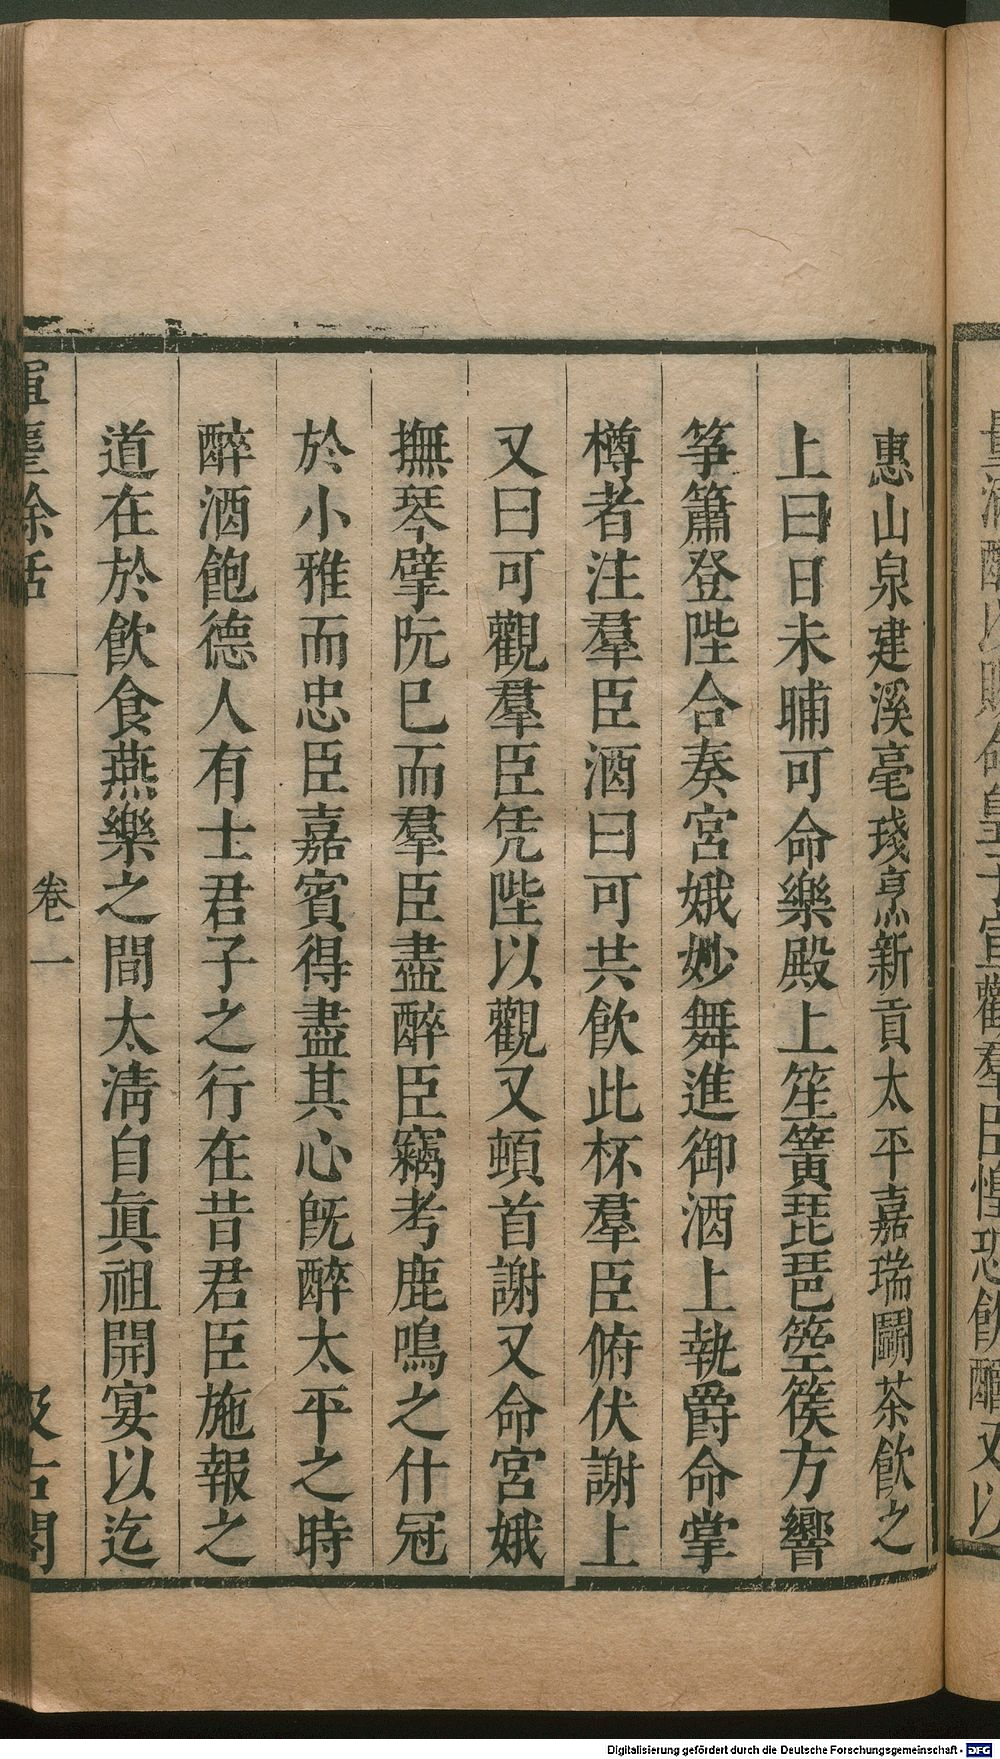 惠山泉建溪毫琖烹新貢太平嘉瑞鬭茶飲之
上曰日未晡可命樂殿上笙簧琵琶箜篌方響
筝簫登陛合奏宮娥妙舞進御酒上執爵命掌
樽者注羣臣酒曰可共飲此杯羣臣俯伏謝上
又曰可觀羣臣凭陛以觀又頓首謝又命宮娥
撫琴擘阮巳而羣臣盡醉臣竊考鹿鳴之什冠
於小雅而忠臣嘉賓得盡其心旣醉太平之時
醉酒飽德人有士君子之行在昔君臣施報之
道在於飲食燕樂之間太清自眞祖開宴以迄
揮麈餘話
卷一
汲古閣
Digitalisierung gefördert durch die Deutsche Forschungsgemeinschaft - DFG